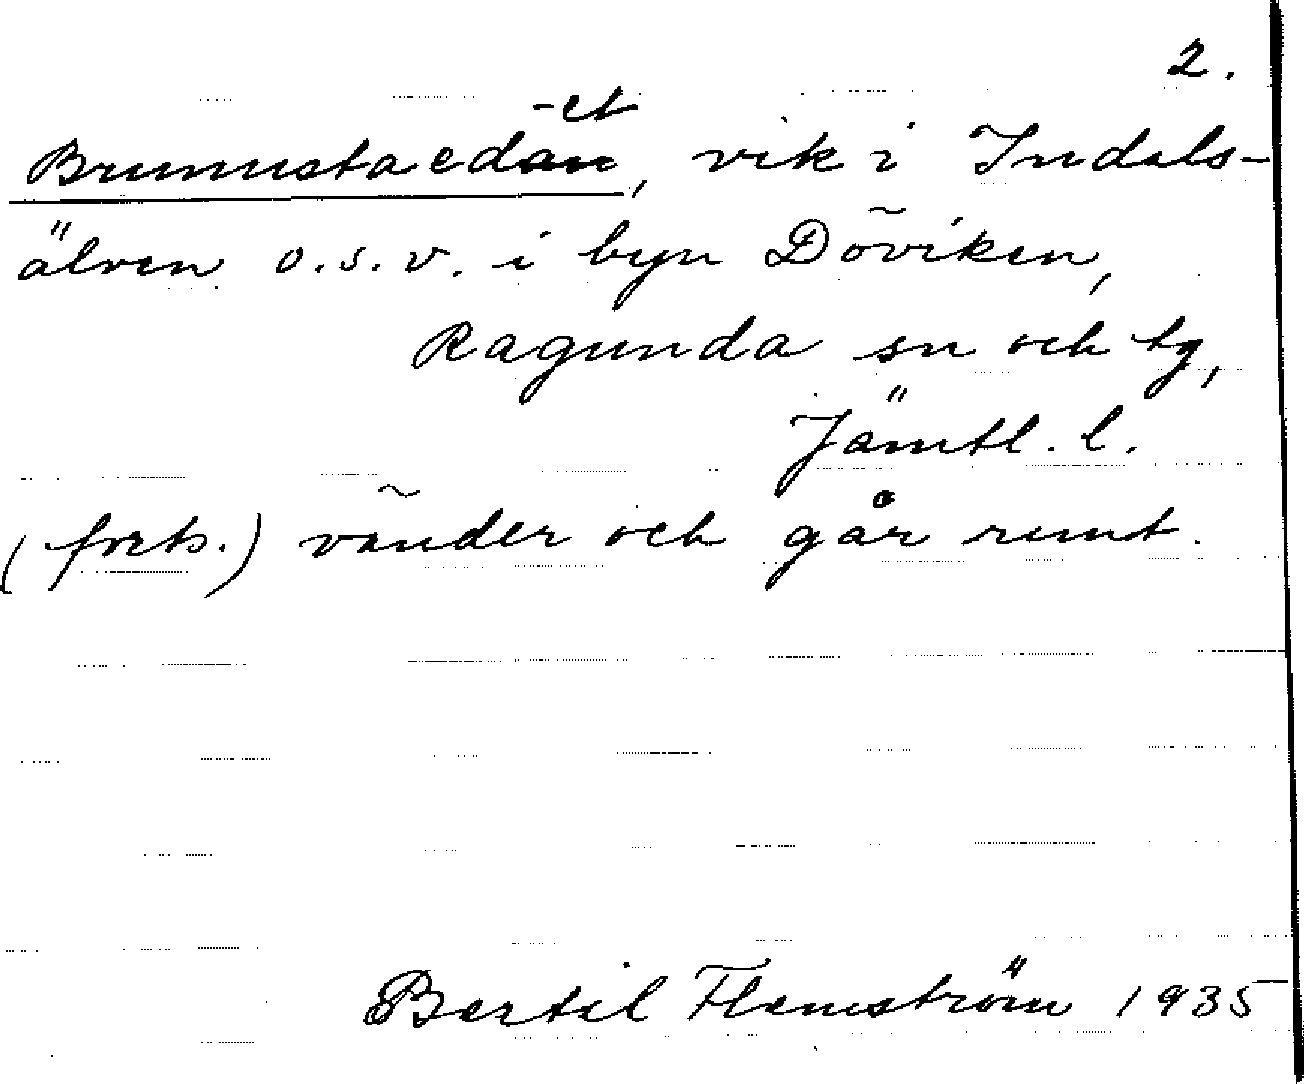 2.
-et
Brunnstaedan, vik i Indals-
älven o.s.v. i byn Döviken,
Ragunda sn och tg,
Jämtl. l.
(forts.) vänder och går runt.
Bertil Flemström 1935